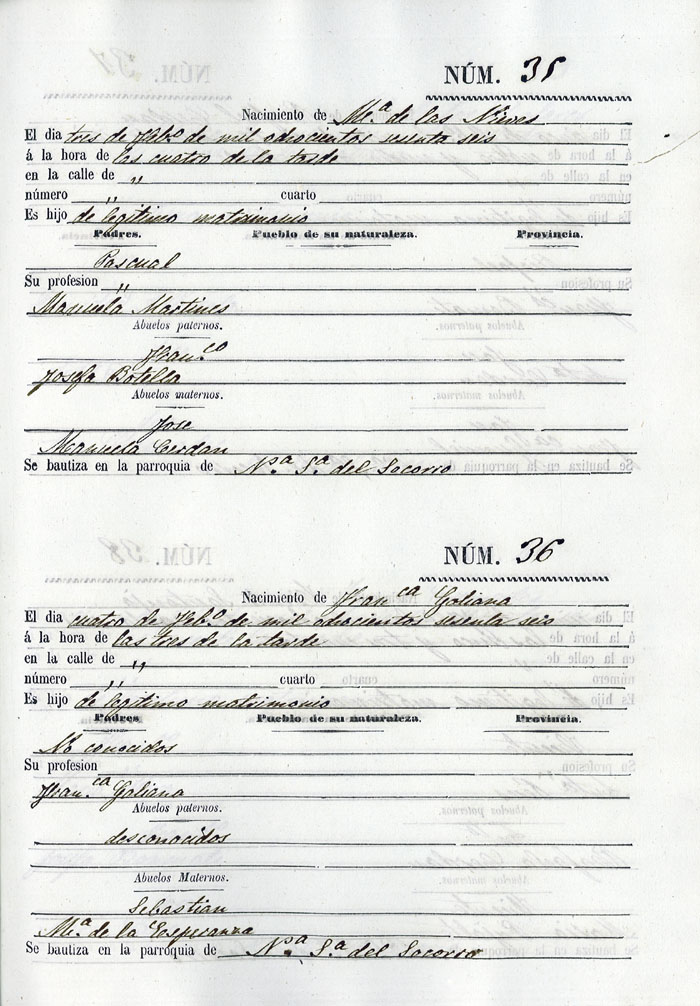 NÚM. 35
Nacimiento de Mª. de las Nieves
El dia tres de Febº. de mil ochocientos sesenta seis
á la hora de las cuatro de la tarde
en la calle de „
número „ cuarto
Es hijo de legitimo matrimonio
Padres. Pueblo de su naturaleza. Provincia.
Pascual
Su profesion „
Manuela Martines
Abuelos paternos.
Fran.co
Josefa Botella
Abuelos maternos.
Jose
Manuela Cerdan
Se bautiza en la parroquia de N.ª S.ª del Socorro
NÚM. 36
Nacimiento de Fran.ca Galiana
El dia cuatro de Febº. de mil ochocientos sesenta seis
á la hora de las tres de la tarde
en la calle de „
número „ cuarto
Es hijo de legitimo matrimonio
Padres Pueblo de su naturaleza. Provincia.
No conocidos
Su profesion
Fran.ca Galiana
Abuelos paternos.
desconocidos
Abuelos Maternos.
Sebastian
Mª. de la Esperanza
Se bautiza en la parroquia de N.ª S.ª del Socorro